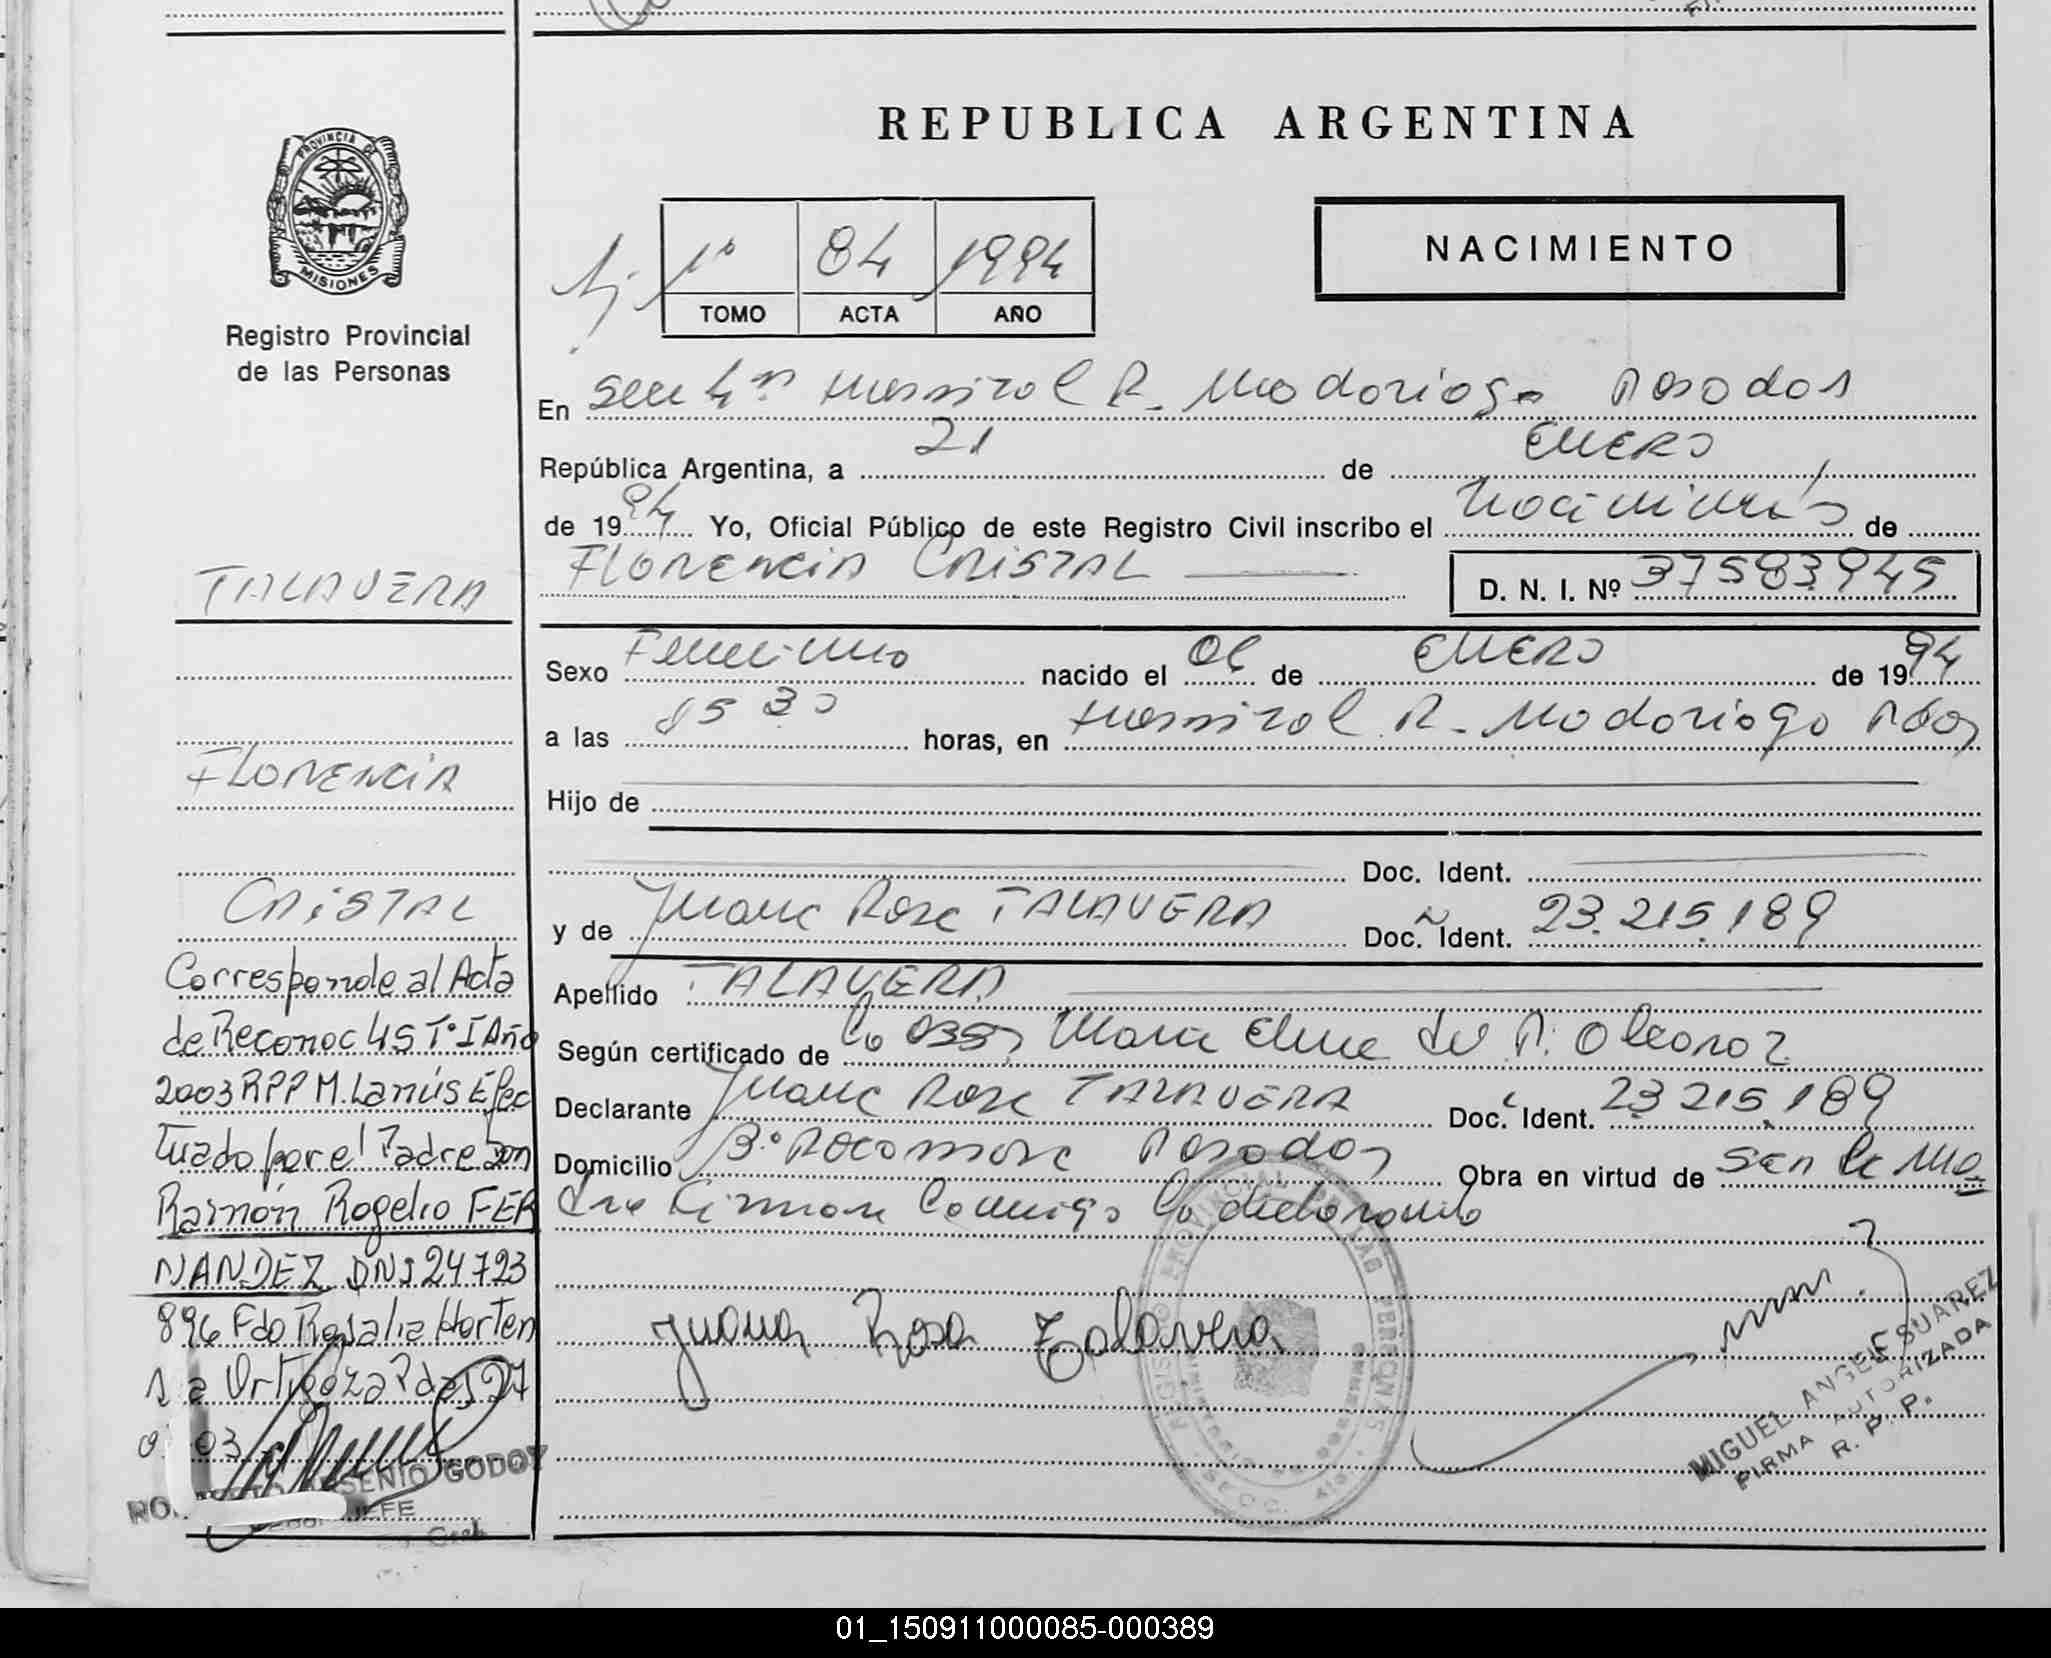 REPUBLICA ARGENTINA
PROVINCIA DE
MISIONES
Registro Provincial
de las Personas
1º 84 1994
TOMO ACTA AÑO
NACIMIENTO
En R. Madariaga Posadas
República Argentina, a 21 de ENERO
de 1994 Yo, Oficial Público de este Registro Civil inscribo el nacimiento de
FLORENCIA CRISTAL
D. N. I. Nº 37583945
Sexo Femenino nacido el 06 de ENERO de 1994
a las 15 30 horas, en R. Madariaga Pdas
Hijo de
Doc. Ident.
y de Juana Rosa TALAVERA Doc. Ident. 23.215.189
Apellido TALAVERA
Según certificado de
Declarante Juana Rosa TALAVERA Doc. Ident. 23 215.189
Domicilio Bº Rocamora Posadas Obra en virtud de ser la Ma
dre Firman Conmigo la declarante
Juana Rosa Talavera
MIGUEL ANGEL SUAREZ
FIRMA AUTORIZADA
R. P. P.
TALAVERA
FLORENCIA
CRISTAL
Corresponde al Acta
de Reconoc 45 Tº I Año
2003 RPP M. Lanús Efec
tuado por el Padre Don
Ramón Rogelio FER
NANDEZ DNI 24723
896 Fdo Rosalia Horten
a Ortigoza Pdas 27
03
ARSENIO GODOY
JEFE
01_150911000085-000389